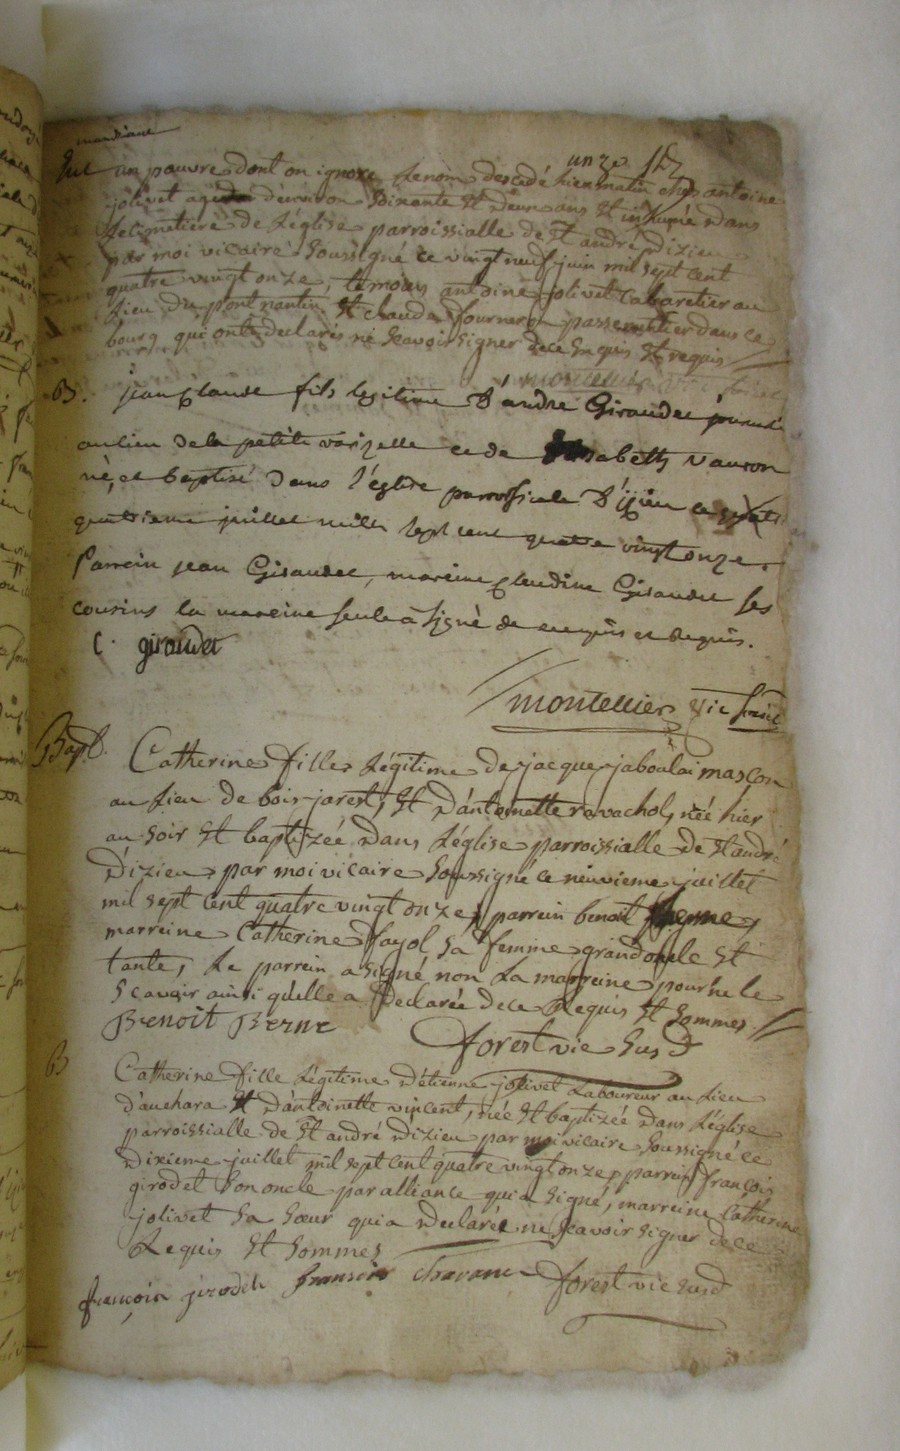 mandiant
un pauvre dont on ignore le nom decedé hier matin chez antoine
onze
jolivet agé d'environ soixante et deux ans et inhumé dans
le cimetiere de l'église parroissialle de st andré dizieu
par moi vicaire soussigné ce vingt neuf juin mil sept cent
quatre vingt onze, témoins antoine jolivet cabaretier au
lieu du pont nantin et claude fourneron passementier dans ce
bourg qui ont declarés ne scavoir signer de ce enquis et requis
B. jean Claude fils legitime d'andre Giraudet
au lieu de la petite varizelle et de vauron
né, et baptisé dans l'église parroissiale d'izieu ce
quatrieme juillet mille sept cent quatre vingt onze.
Parrein jean Giraudet, mareine claudine Giraudet ses
cousins la mareine seule à signé de ce enquis et requis.
C. giraudet
montellier vic
Bapt. Catherine fille légitime de jacque jaboulai mascon
au lieu de bois jarest, et d'antoinette ravachol, née hier
au soir et baptizée dans l'église parroissialle de st andré
d'izieu par moi vicaire soussigné ce neuvieme juillet
mil sept cent quatre vingt onze, parrein benoit
marreine Catherine fayol sa femme grand oncle et
tante, le parrein a signé non la marreine pour ne le
scavoir ainsi qu'elle a declarée de ce Requis et sommés
Benoit Berne
forest vic susd
B Catherine fille légitime d'étienne jolivet Laboureur au lieu
d'auchara et d'antoinette vincent, née et baptizée dans l'église
parroissialle de st andré dizieu par moi vicaire soussigné ce
dixieme juillet mil sept cent quatre vingt onze, parrein françois
girodet son oncle par alliance qui a signé, marreine Catherine
jolivet sa sœur qui a declarée ne scavoir signer de ce
Requis et sommés
françois girodet forest vic susd